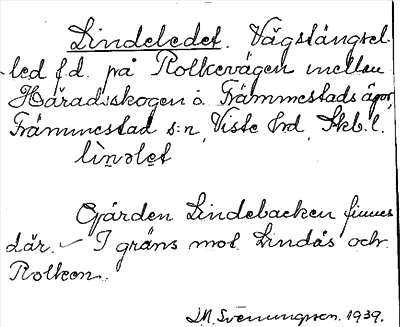 Lindeledet. Vägstängsel-
led f.d. på Rolkevägen mellan
Häradsskogen o. Främmestads ägor,
Främmestad s:n, Viste hrd, Skb. l.
lìn̥əle̥t
Gården Lindebacken finnes
där. – I gräns mot Lindås och
Rolken.
D.N. Svenungsson. 1939.